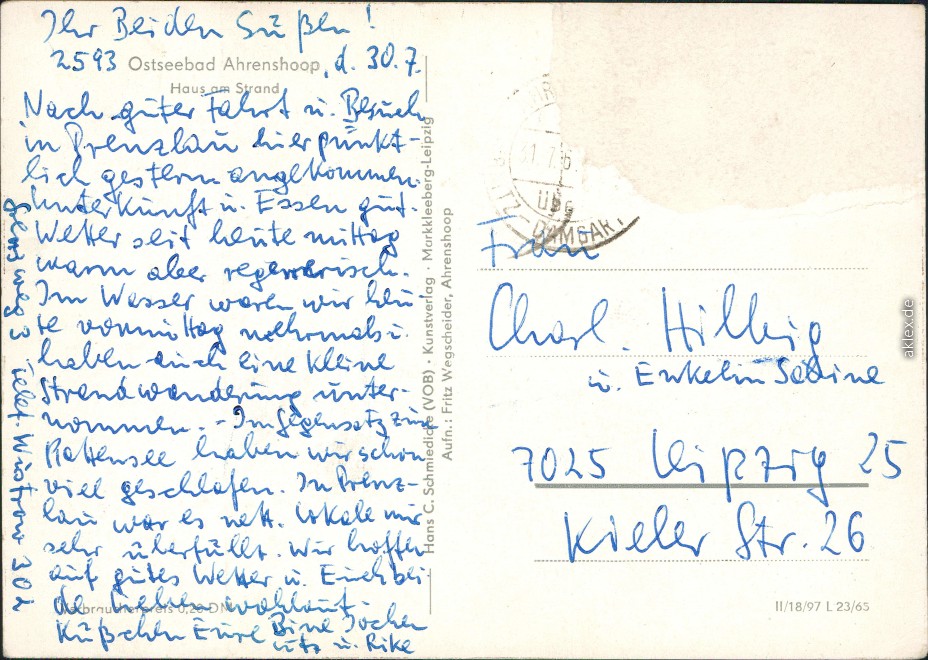 Ihr Beiden Süßen!
2593 Ostseebad Ahrenshoop, d. 30.7.
Haus am Strand
Nach guter Fahrt u. Besuch
in Prenzlau hier pünkt-
lich gestern angekommen.
Unterkunft u. Essen gut.
Wetter seit heute mittag
warm aber regnerisch.
Im Wasser waren wir heu-
te vormittag mehrmals u.
haben auch eine kleine
Strandwanderung unter-
nommen. - Im Gegensatz zum
Plattensee haben wir schon
viel geschlafen. In Prenz-
lau war es nett. Lokale nur
sehr überfüllt. Wir hoffen
auf gutes Wetter u. Euch bei-
de Lieben wohlauf.
Küßchen Eure Bine Jochen
Utz u. Rike
Verbraucherpreis 0,20 DM
Telef. Wustrow 302
Hans C. Schmiedicke (VOB) · Kunstverlag · Markkleeberg-Leipzig
Aufn.: Fritz Wegscheider, Ahrenshoop
31.7.6
DAMGAR
Frau
Charl. Hillbig
u. Enkelin Sabine
7025 Leipzig 25
Kieler Str. 26
II/18/97 L 23/65
aklex.de